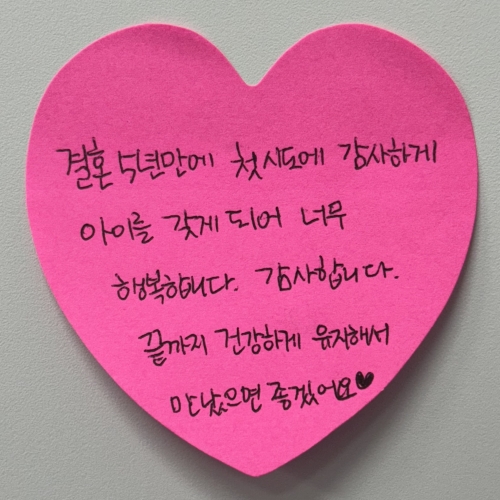 결혼 5년만에 첫시도에 감사하게
아이를 갖게 되어 너무
행복합니다. 감사합니다.
끝까지 건강하게 유지해서
만났으면 좋겠어요♥